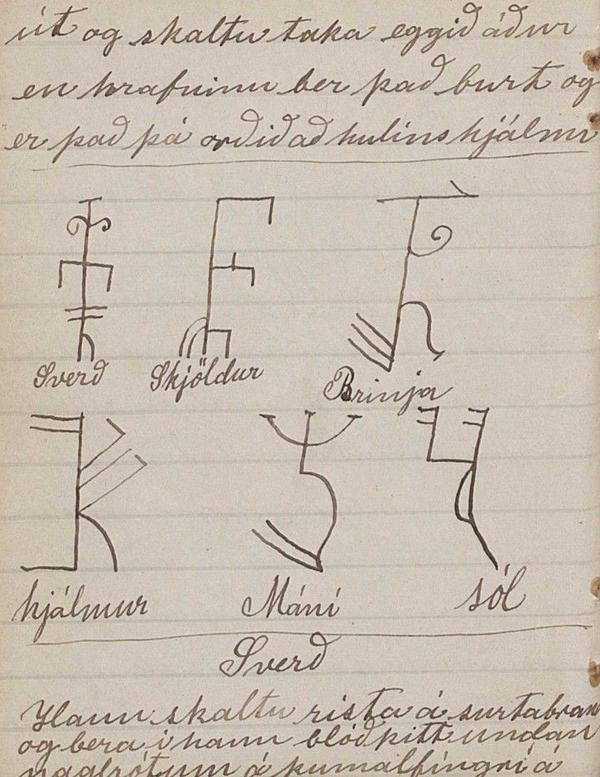 út og skaltu taka eggið áður
en hrafninn ber það burt og
er það þá orðið að hulinshjálmi
Sverð Skjöldur Brinja
hjálmur Máni sól
Sverð
Hann skaltu rista á surtabran
og bera í hann blóð þitt undan
naglrótum á þumalfingri á